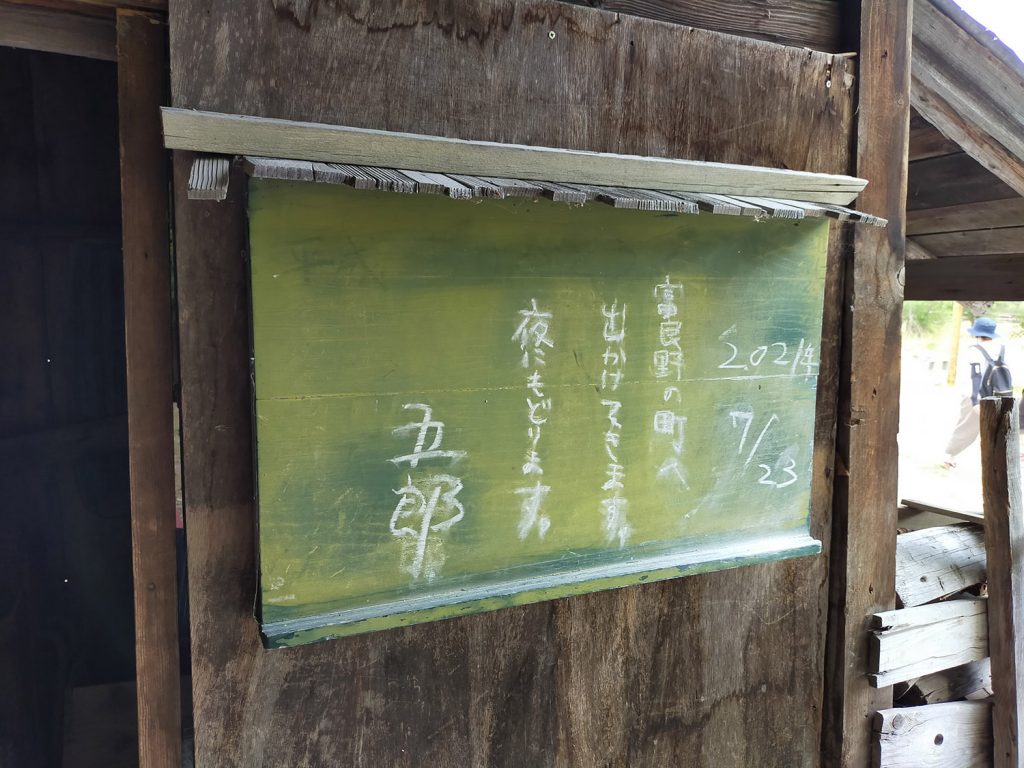 2021年
7/23
富良野の町へ
出かけてきます。
夜にもどります。
五郎